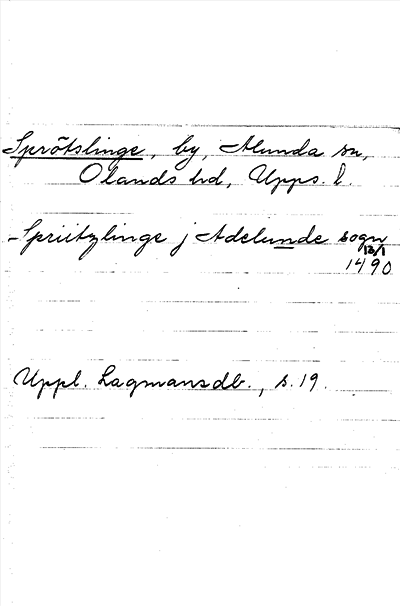 Sprötslinge, by, Alunda sn,
Olands hd, Upps. l.
- Sprützlinge j Adelunde sogn
13/1
1490
Uppl. Lagmansdb., s. 19.